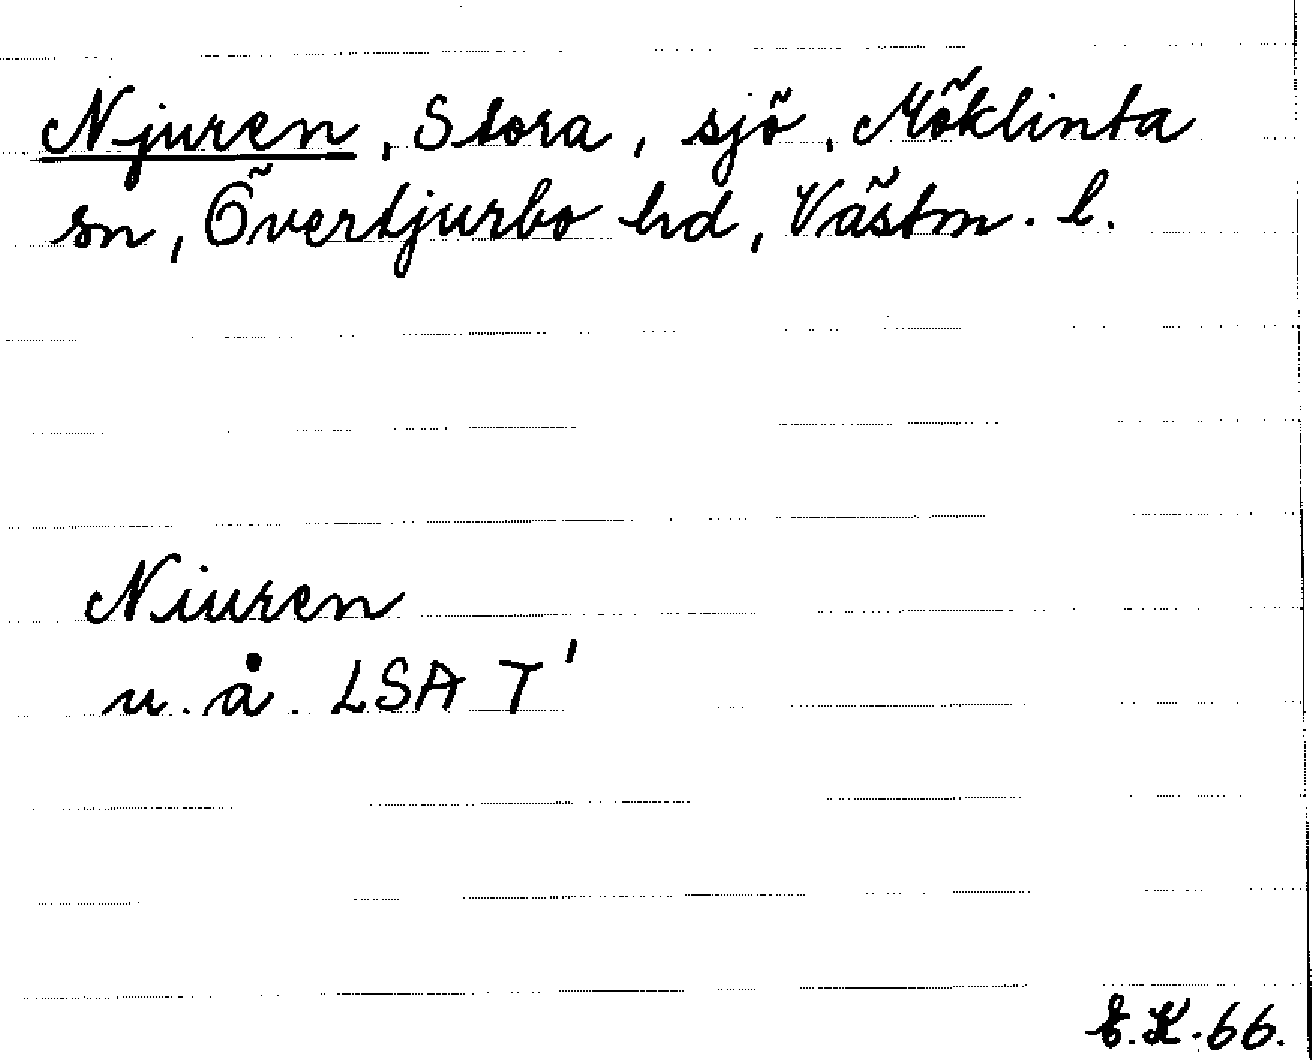 Njuren, Stora, sjö, Möklinta
sn, Övertjurbo hd, Västm. l.
Niuren
u.å. LSA T'
E.K.66.